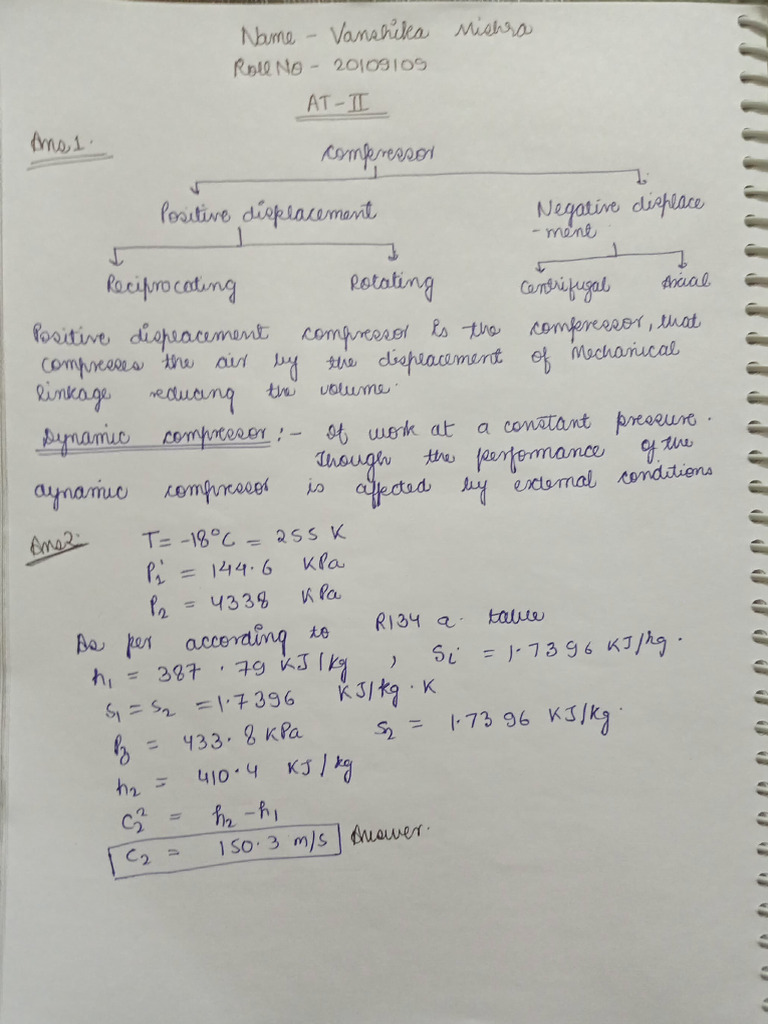 Name - Vanshika Mishra
Roll No - 20109109
AT-II
Ans1.
Compressor
Positive displacement
Negative displace
-ment
Reciprocating
Rotating
Centrifugal
Axial
Positive dispacement compressor is the compressor, that
compresses the air by the displacement of Mechanical
linkage reducing the volume.
Dynamic compressor :- It work at a constant pressure.
Though the performance of the
dynamic compressor is affected by external conditions
Ans2.
T = -18°C = 255 K
P1 = 144.6 KPa
P2 = 4338 KPa
As per according to R134 a. table
h1 = 387.79 KJ/kg, Si = 1.7396 KJ/kg.
S1 = S2 = 1.7396 KJ/kg.K
P2 = 433.8 KPa S2 = 1.7396 KJ/kg.
h2 = 410.4 KJ/kg
C2² = h2 - h1
C2 = 150.3 m/s Answer.